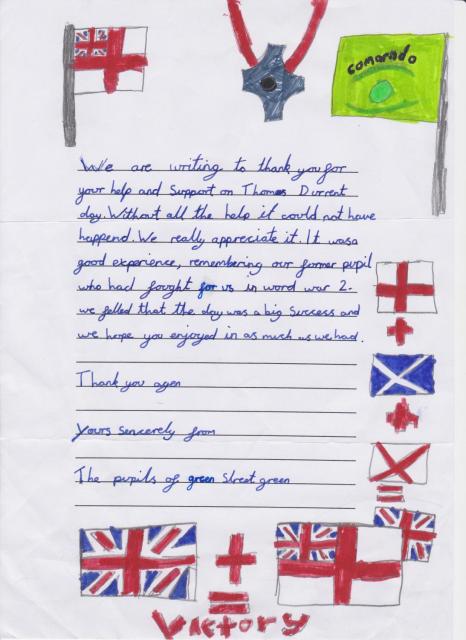 comarado
We are writing to thank you for
your help and Support on Thomas Durrent
day. Without all the help it could not have
happend. We really appreciate it. It was a
good experience, remembering our former pupil
who had fought for us in word war 2.
we felled that the day was a big Success and
we hope you enjoyed in as much as we had.
Thank you agen
Yours sencerely from
The pupils of green Street green
Victory